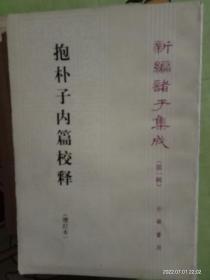 新编諸子集成
(第一辑)
抱朴子内篇校释
(增订本)
中华書局
2022.07.01 22:22:02